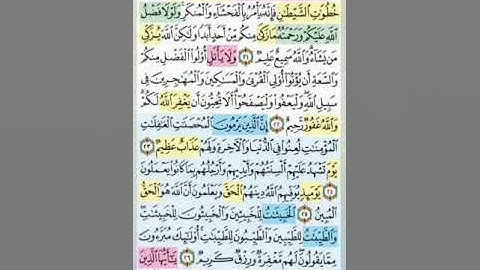 خُطُوَٰتِ ٱلشَّيْطَٰنِ فَإِنَّهُۥ يَأْمُرُ بِٱلْفَحْشَآءِ وَٱلْمُنكَرِ وَلَوْلَا فَضْلُ
ٱللَّهِ عَلَيْكُمْ وَرَحْمَتُهُۥ مَا زَكَىٰ مِنكُم مِّنْ أَحَدٍ أَبَدًا وَلَٰكِنَّ ٱللَّهَ يُزَكِّى
مَن يَشَآءُ وَٱللَّهُ سَمِيعٌ عَلِيمٌ ٢١ وَلَا يَأْتَلِ أُو۟لُوا۟ ٱلْفَضْلِ مِنكُمْ
وَٱلسَّعَةِ أَن يُؤْتُوٓا۟ أُو۟لِى ٱلْقُرْبَىٰ وَٱلْمَسَٰكِينَ وَٱلْمُهَٰجِرِينَ فِى
سَبِيلِ ٱللَّهِ وَلْيَعْفُوا۟ وَلْيَصْفَحُوٓا۟ أَلَا تُحِبُّونَ أَن يَغْفِرَ ٱللَّهُ لَكُمْ
وَٱللَّهُ غَفُورٌ رَّحِيمٌ ٢٢ إِنَّ ٱلَّذِينَ يَرْمُونَ ٱلْمُحْصَنَٰتِ ٱلْغَٰفِلَٰتِ
ٱلْمُؤْمِنَٰتِ لُعِنُوا۟ فِى ٱلدُّنْيَا وَٱلْءَاخِرَةِ وَلَهُمْ عَذَابٌ عَظِيمٌ ٢٣
يَوْمَ تَشْهَدُ عَلَيْهِمْ أَلْسِنَتُهُمْ وَأَيْدِيهِمْ وَأَرْجُلُهُم بِمَا كَانُوا۟ يَعْمَلُونَ
٢٤ يَوْمَئِذٍ يُوَفِّيهِمُ ٱللَّهُ دِينَهُمُ ٱلْحَقَّ وَيَعْلَمُونَ أَنَّ ٱللَّهَ هُوَ ٱلْحَقُّ
ٱلْمُبِينُ ٢٥ ٱلْخَبِيثَٰتُ لِلْخَبِيثِينَ وَٱلْخَبِيثُونَ لِلْخَبِيثَٰتِ
وَٱلطَّيِّبَٰتُ لِلطَّيِّبِينَ وَٱلطَّيِّبُونَ لِلطَّيِّبَٰتِ أُو۟لَٰٓئِكَ مُبَرَّءُونَ
مِمَّا يَقُولُونَ لَهُم مَّغْفِرَةٌ وَرِزْقٌ كَرِيمٌ ٢٦ يَٰٓأَيُّهَا ٱلَّذِينَ